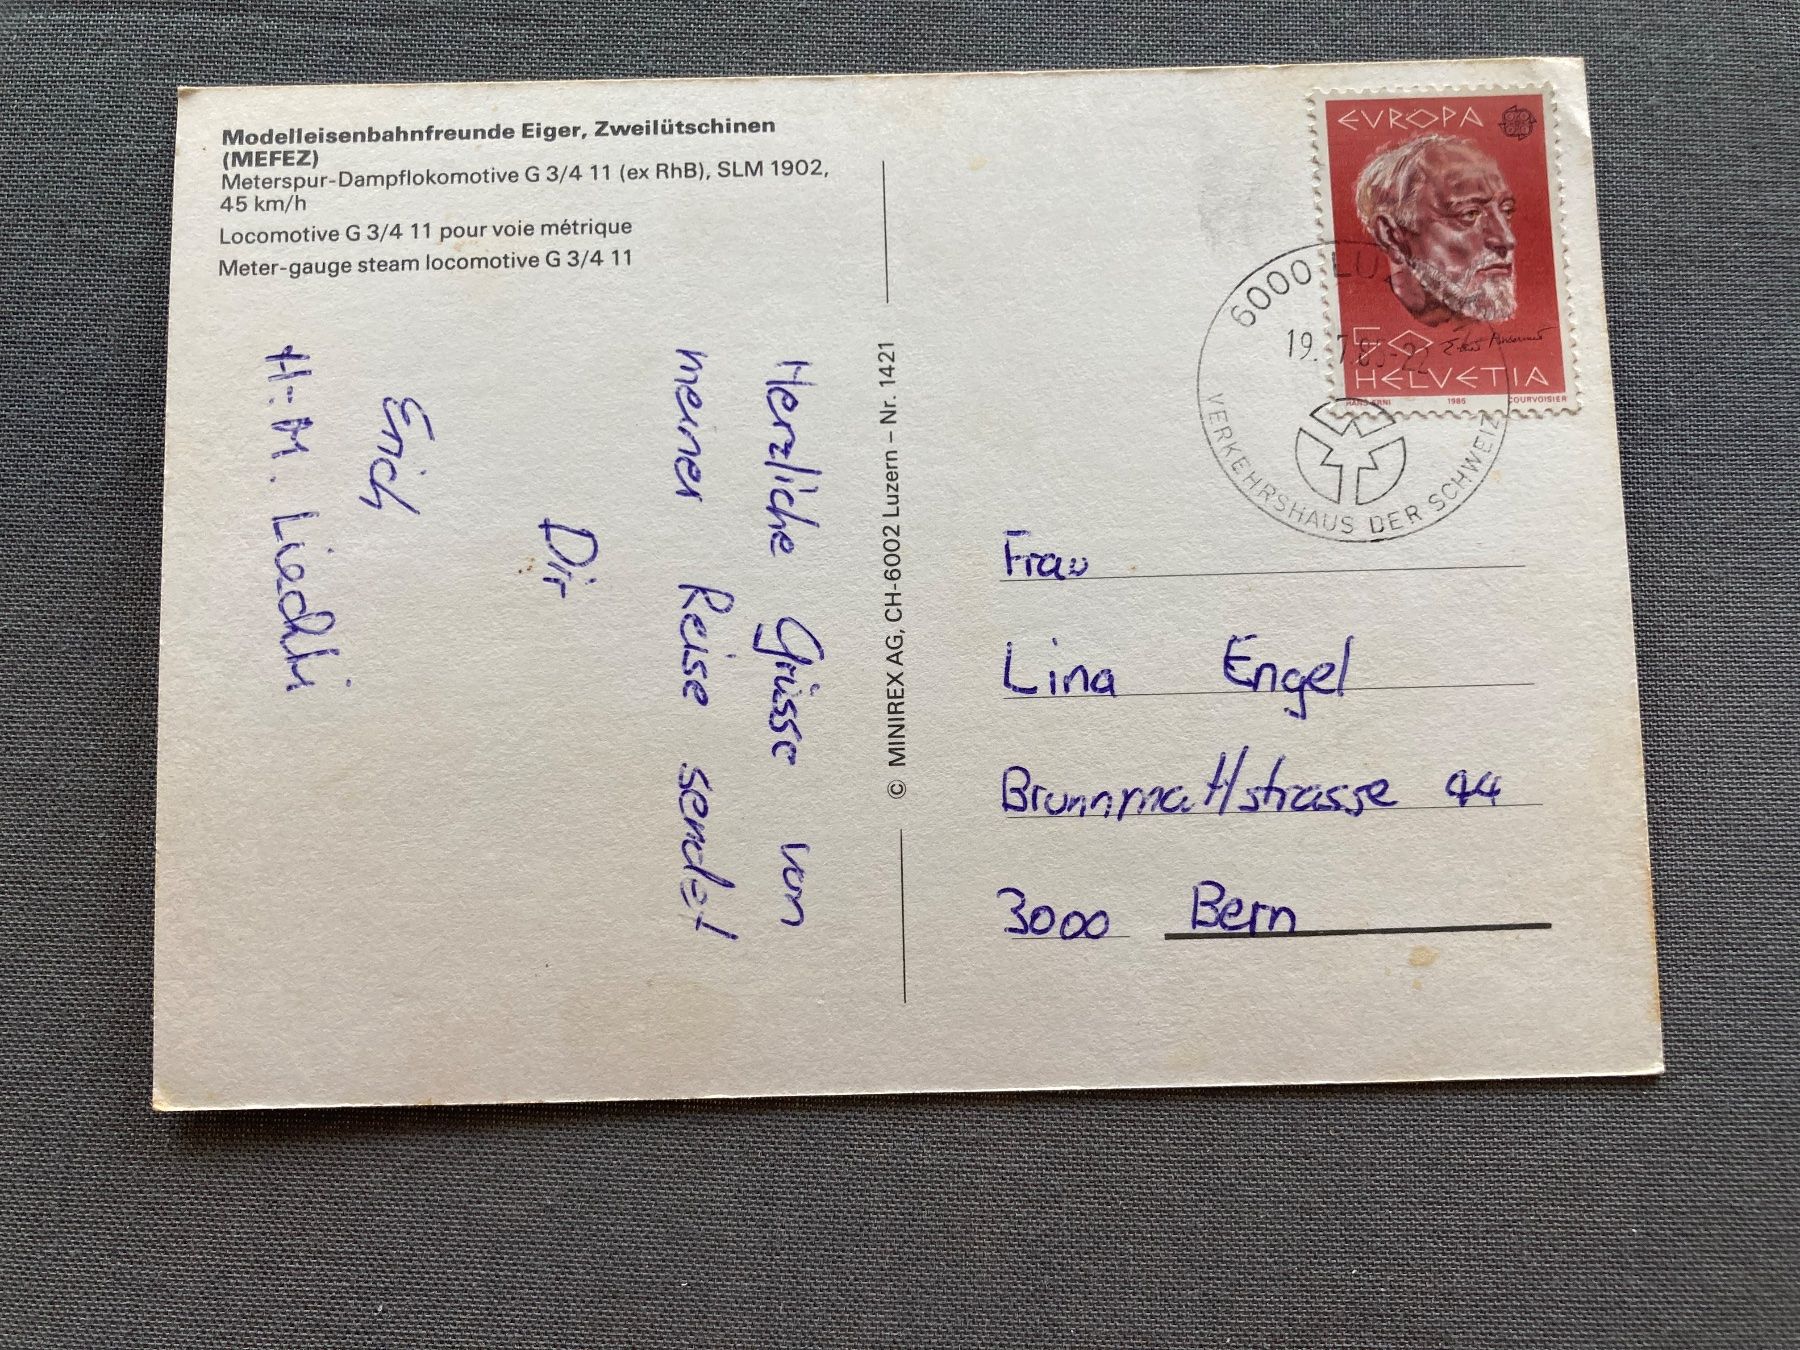 Modelleisenbahnfreunde Eiger, Zweilütschinen
(MEFEZ)
Meterspur-Dampflokomotive G 3/4 11 (ex RhB), SLM 1902,
45 km/h
Locomotive G 3/4 11 pour voie métrique
Meter-gauge steam locomotive G 3/4 11
Herzliche Grüsse von
meiner Reise sendet
Dir
Erich
H.-M. Liechti
© MINIREX AG, CH-6002 Luzern – Nr. 1421
EVROPA
50
HELVETIA
HANS ERNI 1985 COURVOISIER
6000 LUZ
19. 7.85-22
VERKEHRSHAUS DER SCHWEIZ
Frau
Lina Engel
Brunnmattstrasse 44
3000 Bern